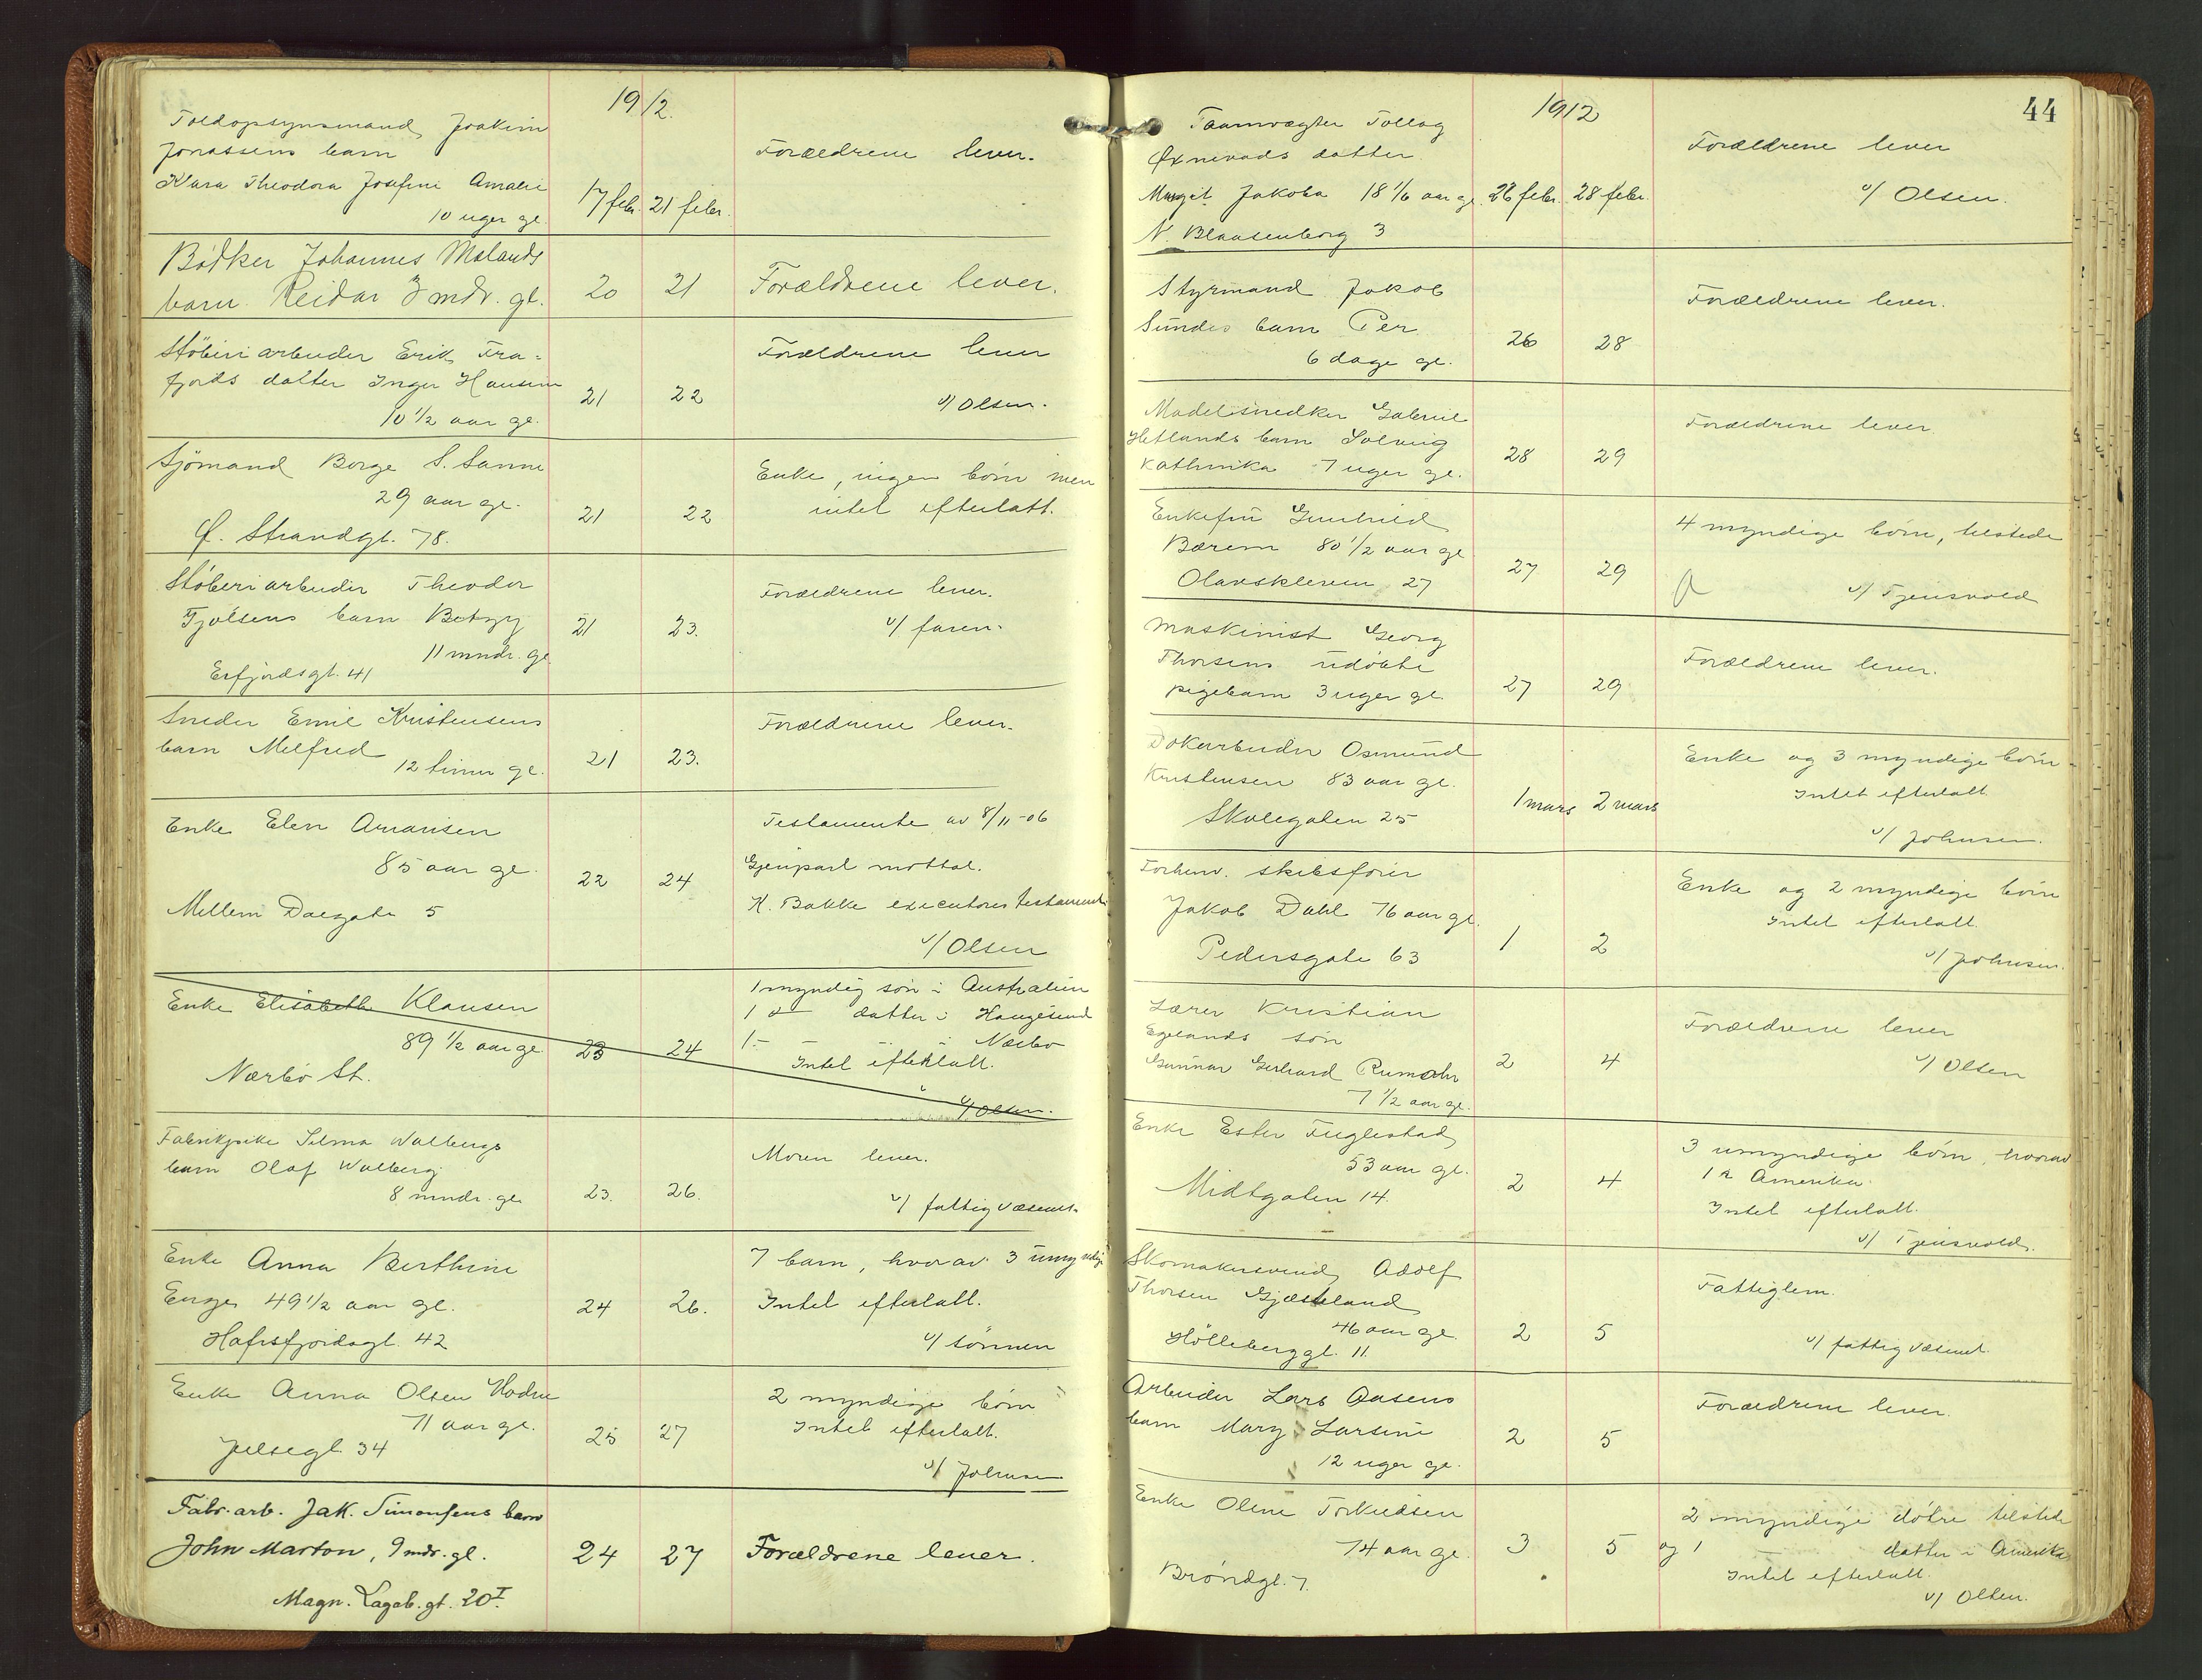 1912.
Toldopsynsmand Joakim
Jonassens barn
Klara Theodora Josefine Amalie
10 uger gl. 17 febr. 21 febr.
Forældrene lever.
Bødker Johannes Mølands
barn Reidar 3 mdr. gl. 20 21 Forældrene lever.
Støberiarbeider Erik Fra-
fjords datter Inger Hansine
10 1/2 aar gl. 21 22
Forældrene lever
v/ Olsen.
Sjømand Borge S. Sanne
29 aar gl.
Ø. Strandgt. 78. 21 22
Enke, ingen børn men
intet efterlatt.
Støberiarbeider Theodor
Fjølsens barn Betzy
11 mndr. gl.
Erfjordsgt. 41 21 23.
Forældrene lever.
v/ faren.
Snedker Emil Kristensens
barn Melfred
12 timer gl. 21 23.
Forældrene lever.
Enke Elen Amansen
85 aar gl.
Mellem Dalgate 5 22 24
Testamente av 8/11-06
Gjenpart mottat.
K. Bakke executores testamenti
v/ Olsen
Enke Elisabeth Klausen
89 1/2 aar gl.
Nærbø St. 23 24
1 myndig søn i Australien
1 do datter i Haugesund
1 - - - Nærbø
Intet efterlatt.
v/ Olsen.
Fabrikpike Selma Walbergs
barn Olaf Walberg
8 mndr. gl. 23. 26.
Moren lever.
v/ fattigvæsenet.
Enke Anna Berthine
Enges 49 1/2 aar gl.
Hafrsfjordsgt. 42 24 26.
7 barn, hvorav 3 umyndig
Intet efterlatt.
v/ sønnen
Enke Anna Olsen Hodne
71 aar gl.
Jelsegt. 34 25 27
2 myndige børn
Intet efterlatt.
v/ Johnsen
Fabr. arb. Jak. Simonsens barn
John Marton, 9 mdr. gl.
Magn. Lagab. gt. 20 I. 24 27
Forældrene lever.
44
1912
Taarnvægter Tollag
Øxnevads datter
Margit Jakoba 18 1/6 aar gl. 26 febr. 28 febr.
N. Blaasenborg 3
Forældrene lever
v/ Olsen.
Styrmand Jakob
Sundes barn Per
6 dage gl. 26 28
Forældrene lever.
Modelsnedker Gabriel
Hetlands barn Solveig
Kathinka 7 uger gl. 28 29
Forældrene lever.
Enkefru Gunhild
Bærem 80 1/2 aar gl
Olavskleven 27 27 29
4 myndige børn, tilstede
v/ Tjensvold
Maskinist Georg
Thorsens udøbte
pigebarn 3 uger gl. 27 29
Forældrene lever.
Dokarbeider Osmund
Kristensen 83 aar gl.
Skolegaten 25 1 mars 2 mars
Enke og 3 myndige børn.
Intet efterlatt.
v/ Johnsen.
Forhenv. skibsfører
Jakob Dahl 76 aar gl.
Pedersgate 63 1 2
Enke og 2 myndige børn
Intet efterlatt.
v/ Johnsen.
Lærer Kristian
Egelands søn
Gunnar Gerhard Rumohr
7 1/2 aar gl. 2 4
Forældrene lever
v/ Olsen
Enke Ester Fuglestad
53 aar gl.
Midtgaten 14. 2 4
3 umyndige børn, hvorav
1 i Amerika.
Intet efterlatt.
v/ Tjensvold.
Skomakersvend Adolf
Thorsen Gjæsteland
46 aar gl.
Hølleberggt. 11. 2 5
Fattiglem.
v/ fattigvæsenet.
Arbeider Lars Aasens
barn Mary Larsine
12 uger gl. 2 5
Forældrene lever.
Enke Olene Torkildsen
74 aar gl.
Brøndgt. 7. 3 5
2 myndige døtre tilstede
og 1 — datter i Amerika
Intet efterlatt.
v/ Olsen.